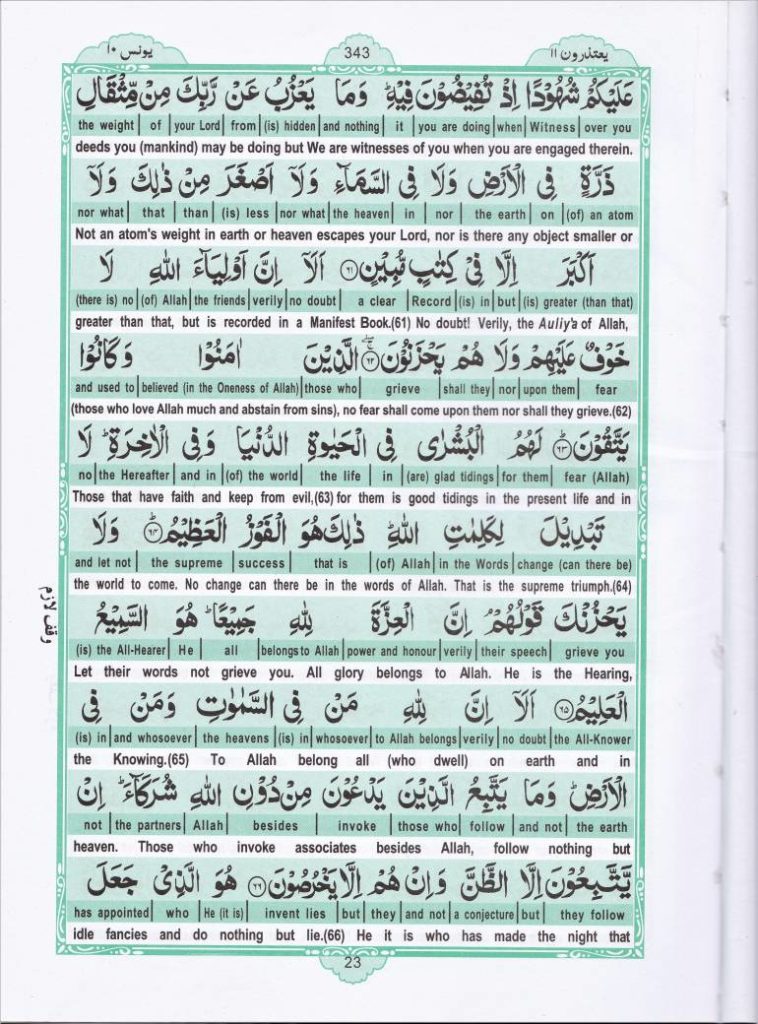 یونس ۱۰ 343 یعتذرون ۱۱
عَلَيْكُمْ شُهُوْدًا اِذْ تُفِيْضُوْنَ فِيْهِ ؕ وَمَا يَعْزُبُ عَنْ رَّبِّكَ مِنْ مِّثْقَالِ
the weight | of | your Lord | from | (is) hidden | and nothing | it | you are doing | when | Witness | over you
deeds you (mankind) may be doing but We are witnesses of you when you are engaged therein.
ذَرَّةٍ فِى الْاَرْضِ وَلَا فِى السَّمَآءِ وَلَاۤ اَصْغَرَ مِنْ ذٰلِكَ وَلَاۤ
nor what | that | than | (is) less | nor what | the heaven | in | nor | the earth | on | (of) an atom
Not an atom's weight in earth or heaven escapes your Lord, nor is there any object smaller or
اَكْبَرَ اِلَّا فِىْ كِتٰبٍ مُّبِيْنٍ ۶۱ اَلَاۤ اِنَّ اَوْلِيَآءَ اللّٰهِ لَا
(there is) no | (of) Allah | the friends | verily | no doubt | a clear | Record | (is) in | but | (is) greater (than that)
greater than that, but is recorded in a Manifest Book.(61) No doubt! Verily, the Auliy'a of Allah,
خَوْفٌ عَلَيْهِمْ وَلَا هُمْ يَحْزَنُوْنَ ۶۲ الَّذِيْنَ اٰمَنُوْا وَكَانُوْا
and used to | believed (in the Oneness of Allah) | those who | grieve | shall they | nor | upon them | fear
(those who love Allah much and abstain from sins), no fear shall come upon them nor shall they grieve.(62)
يَتَّقُوْنَ ۶۳ لَهُمُ الْبُشْرٰى فِى الْحَيٰوةِ الدُّنْيَا وَفِى الْاٰخِرَةِ ؕ لَا
no | the Hereafter | and in | (of) the world | the life | in | (are) glad tidings | for them | fear (Allah)
Those that have faith and keep from evil,(63) for them is good tidings in the present life and in
تَبْدِيْلَ لِكَلِمٰتِ اللّٰهِ ؕ ذٰلِكَ هُوَ الْفَوْزُ الْعَظِيْمُ ۶۴ وَلَا
and let not | the supreme | success | that is | (of) Allah | in the Words | change (can there be)
the world to come. No change can there be in the words of Allah. That is the supreme triumph.(64)
يَحْزُنْكَ قَوْلُهُمْ ۘ اِنَّ الْعِزَّةَ لِلّٰهِ جَمِيْعًا ؕ هُوَ السَّمِيْعُ
وقف لازم
(is) the All-Hearer | He | all | belongs to Allah | power and honour | verily | their speech | grieve you
Let their words not grieve you. All glory belongs to Allah. He is the Hearing,
الْعَلِيْمُ ۶۵ اَلَاۤ اِنَّ لِلّٰهِ مَنْ فِى السَّمٰوٰتِ وَمَنْ فِى
(is) in | and whosoever | the heavens | (is) in | whosoever | to Allah belongs | verily | no doubt | the All-Knower
the Knowing.(65) To Allah belong all (who dwell) on earth and in
الْاَرْضِ ؕ وَمَا يَتَّبِعُ الَّذِيْنَ يَدْعُوْنَ مِنْ دُوْنِ اللّٰهِ شُرَكَآءَ ؕ اِنْ
not | the partners | Allah | besides | invoke | those who | follow | and not | the earth
heaven. Those who invoke associates besides Allah, follow nothing but
يَّتَّبِعُوْنَ اِلَّا الظَّنَّ وَاِنْ هُمْ اِلَّا يَخْرُصُوْنَ ۶۶ هُوَ الَّذِىْ جَعَلَ
has appointed | who | He (it is) | invent lies | but | they | and not | a conjecture | but | they follow
idle fancies and do nothing but lie.(66) He it is who has made the night that
23